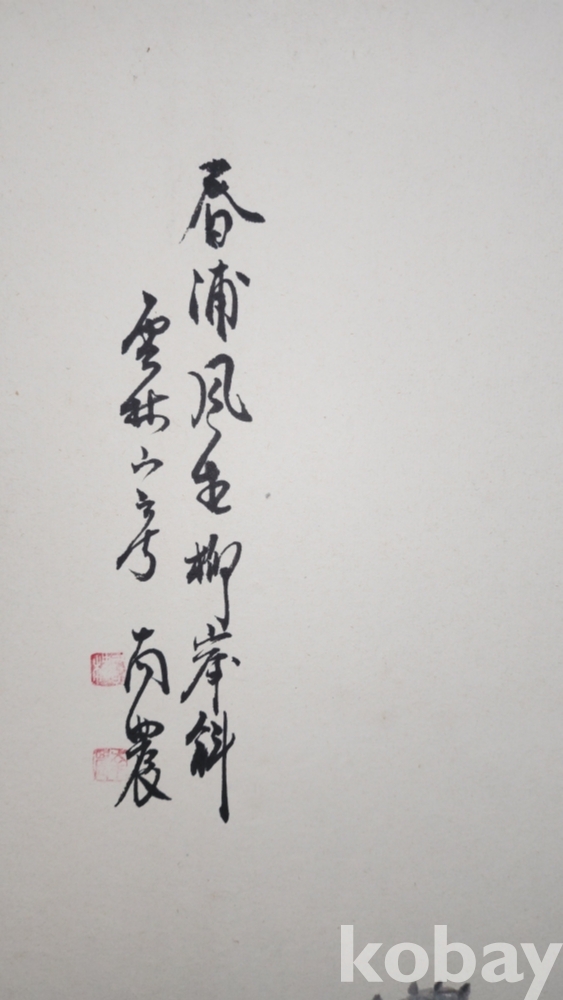 春浦風生柳岸斜
雲林山房 南農
kobay